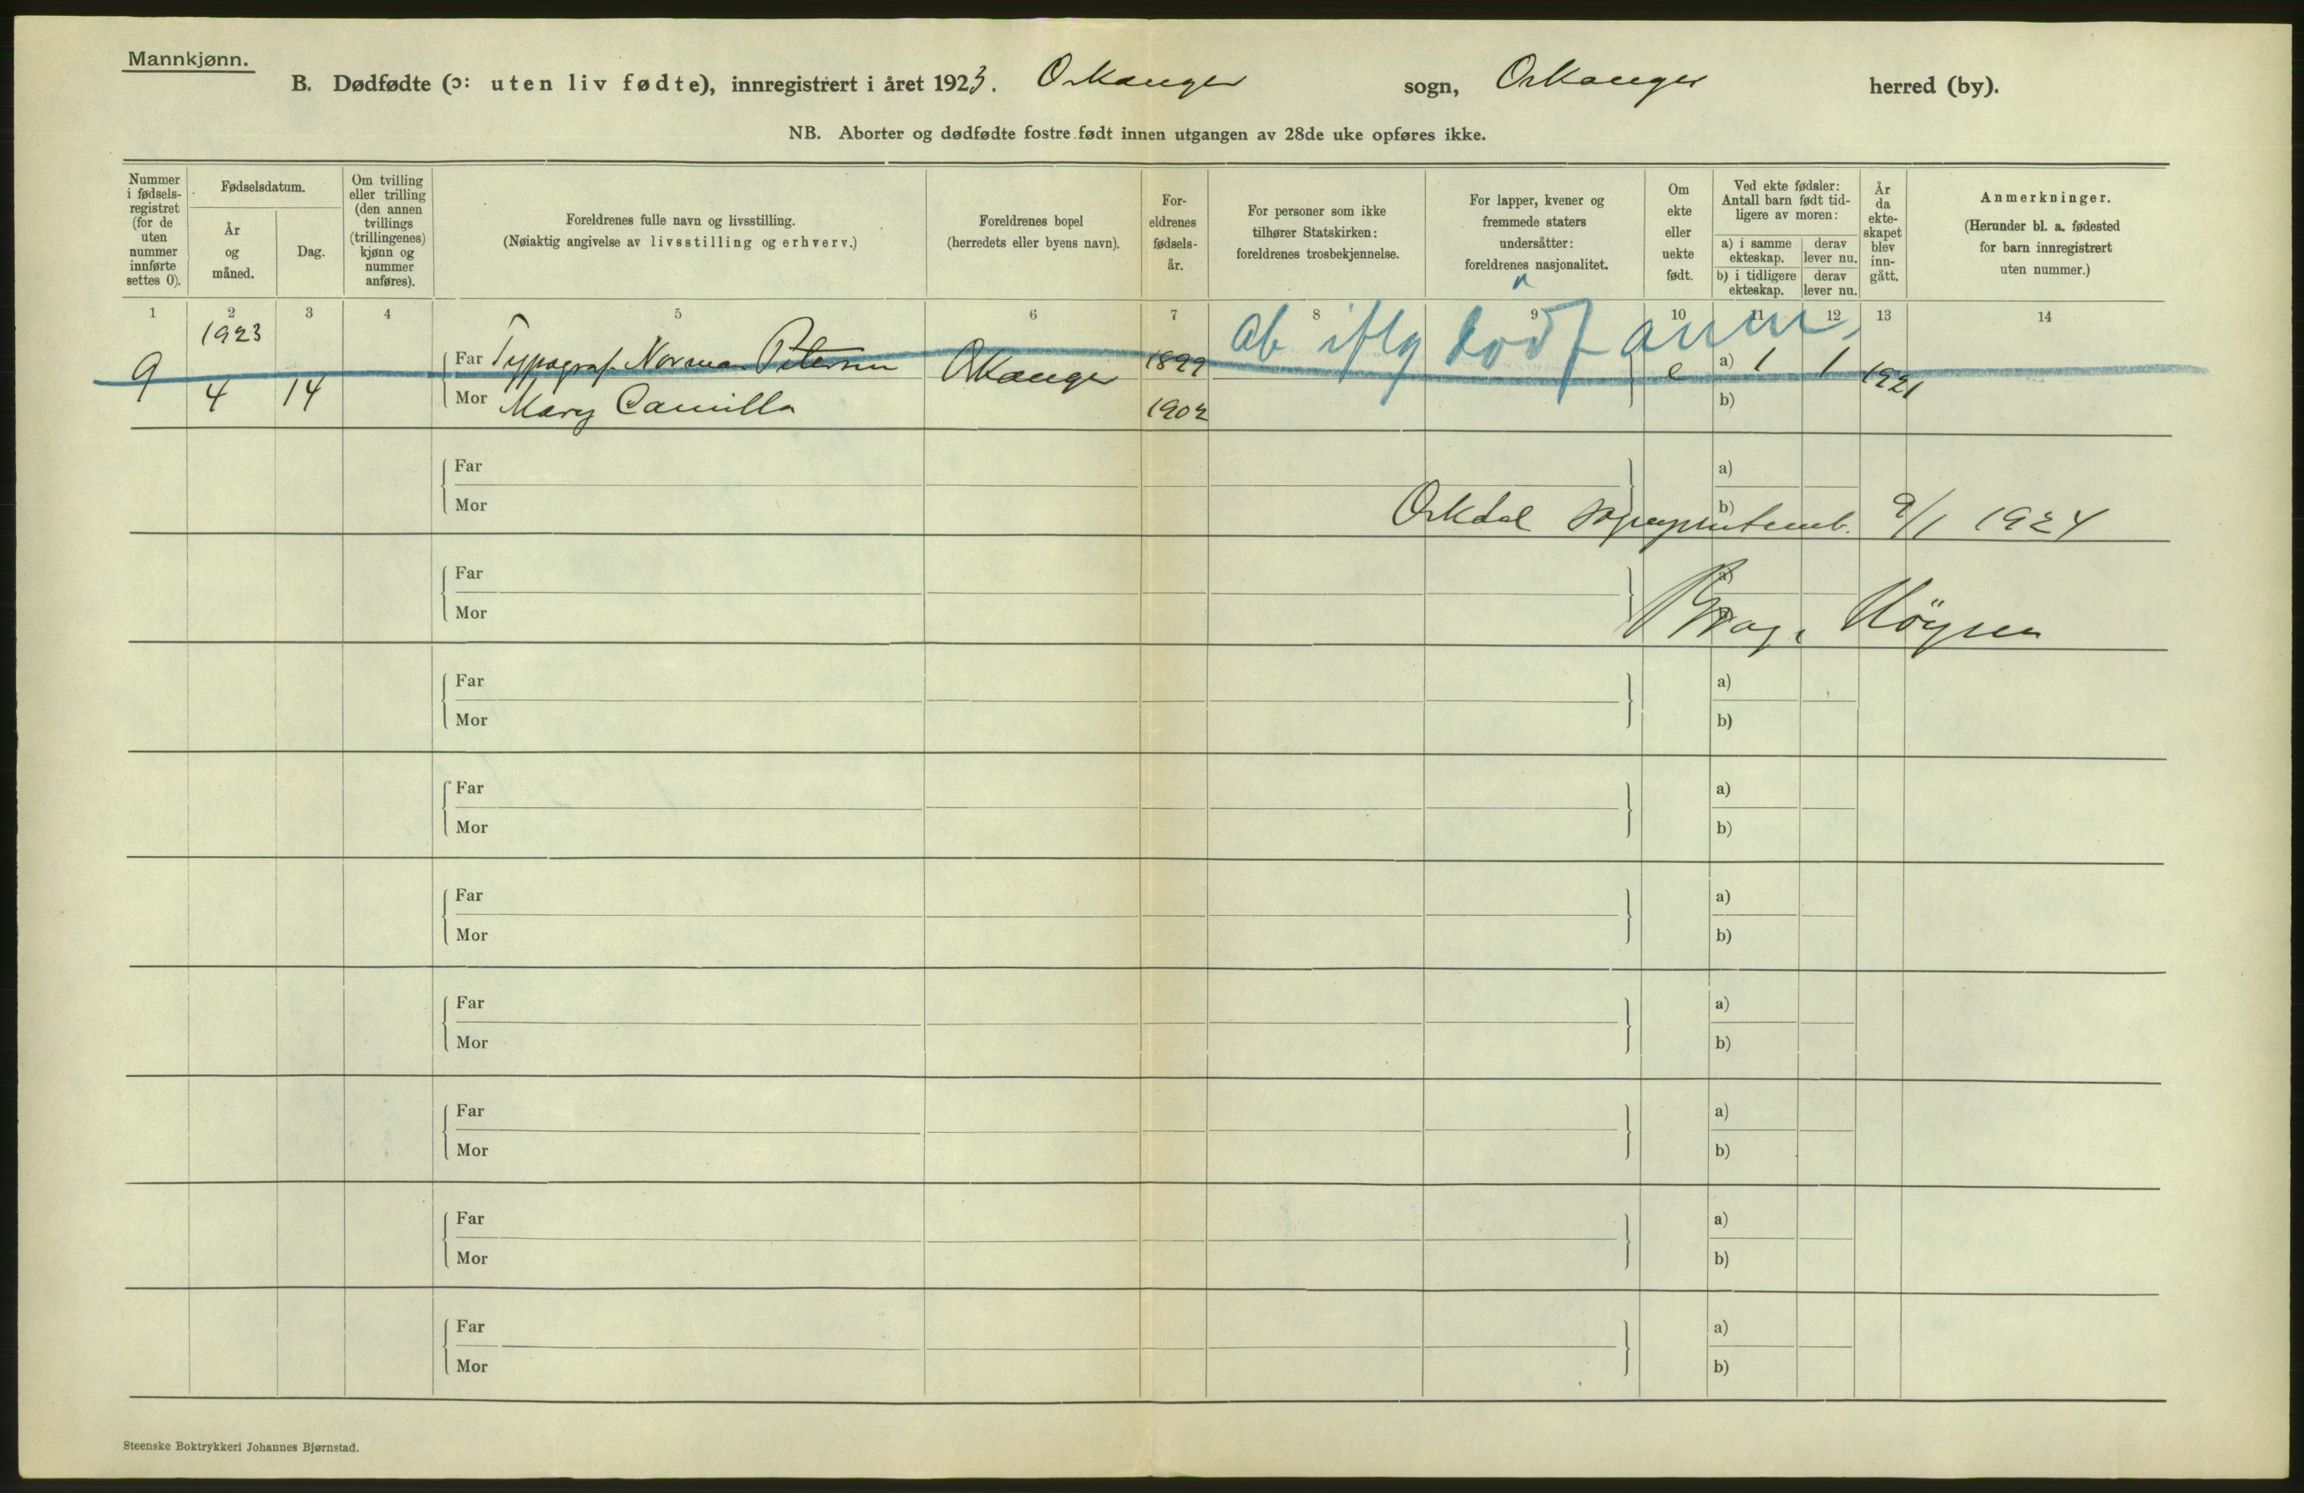 Mannkjønn.
B. Dødfødte (ɔ: uten liv fødte), innregistrert i året 1923. Orkanger sogn, Orkanger herred (by).
NB. Aborter og dødfødte fostre født innen utgangen av 28de uke opføres ikke.
Nummer i fødsels-registret (for de uten nummer innførte settes 0).
Fødselsdatum.
År og måned.
Dag.
Om tvilling eller trilling (den annen tvillings (trillingenes) kjønn og nummer anføres).
Foreldrenes fulle navn og livsstilling.
(Nøiaktig angivelse av livsstilling og erhverv.)
Foreldrenes bopel
(herredets eller byens navn).
For-eldrenes fødsels-år.
For personer som ikke tilhører Statskirken: foreldrenes trosbekjennelse.
For lapper, kvener og fremmede staters undersåtter: foreldrenes nasjonalitet.
Om ekte eller uekte født.
Ved ekte fødsler: Antall barn født tid-ligere av moren:
a) i samme ekteskap.
derav lever nu.
b) i tidligere ekteskap.
derav lever nu.
År da ekte-skapet blev inn-gått.
Anmerkninger.
(Herunder bl. a. fødested for barn innregistrert uten nummer.)
1 2 3 4 5 6 7 8 9 10 11 12 13 14
1923
ab iflg dødf anm.
9 4 14 Far Typograf Norman Petersen Orkanger 1899 e a) 1 1 1921
Mor Mary Camilla 1902 b)
Far a)
Mor b)
Orkdal 9/1 1924
Far a)
Mor
Far a)
Mor b)
Far a)
Mor b)
Far a)
Mor b)
Far a)
Mor b)
Far a)
Mor b)
Far a)
Mor b)
Far a)
Mor b)
Steenske Boktrykkeri Johannes Bjørnstad.